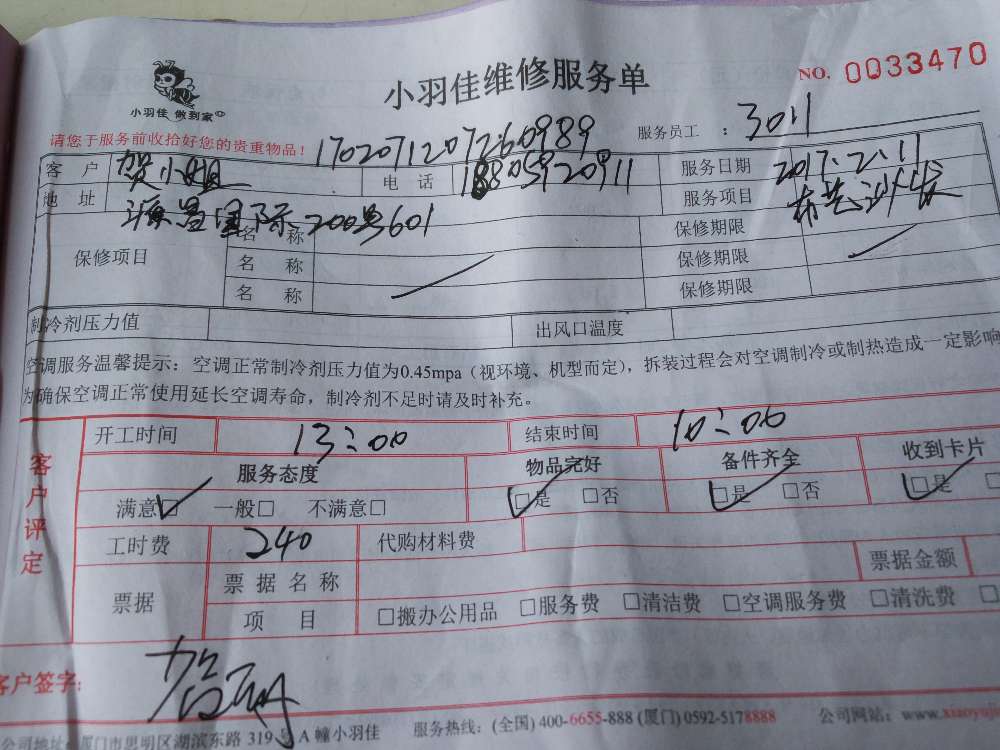 小羽佳维修服务单
NO. 0033470
小羽佳 做到家
请您于服务前收拾好您的贵重物品！
1702071207260989
服务员工 ： 3011
客 户 贺小姐 电 话 18805920911 服务日期 2017.2.11
地 址 源昌国际200号601 服务项目 布艺沙发
保修项目 名 称 保修期限
名 称 保修期限
名 称 保修期限
制冷剂压力值 出风口温度
空调服务温馨提示：空调正常制冷剂压力值为0.45mpa（视环境、机型而定），拆装过程会对空调制冷或制热造成一定影响
为确保空调正常使用延长空调寿命，制冷剂不足时请及时补充。
客户评定
开工时间 13:00 结束时间 10:00
服务态度 物品完好 备件齐全 收到卡片
满意☑ 一般□ 不满意□ ☑是 □否 ☑是 □否 ☑是 □
工时费 240 代购材料费
票据 票 据 名 称 票据金额
项 目 □搬办公用品 □服务费 □清洁费 □空调服务费 □清洗费 □
客户签字:
公司地址 厦门市思明区湖滨东路 319 号 A 幢小羽佳 服务热线：(全国) 400-6655-888 (厦门) 0592-5178888 公司网站：www.xiaoyuj